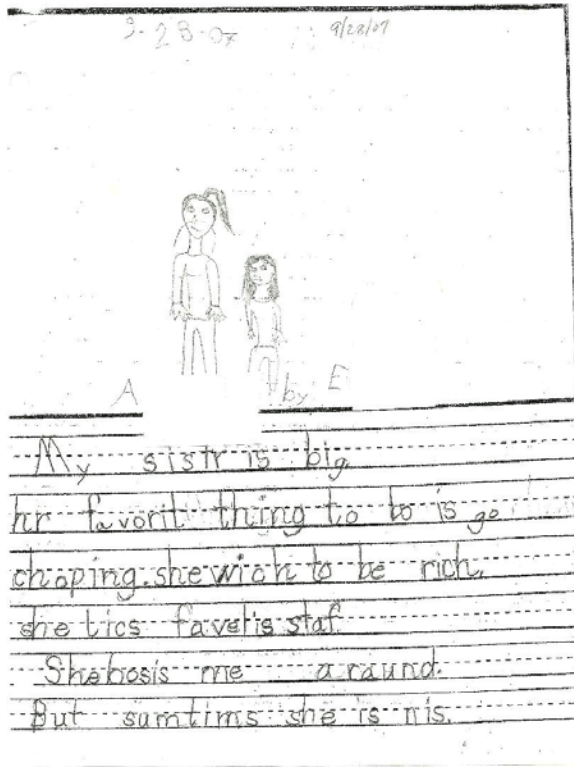 9-28-07 9/28/07
A by E
My sistr is big.
hr favorit thing to to is go
choping. she wich to be rich.
she lics favelis staf.
She bosis me araund.
But sumtims she is nis.